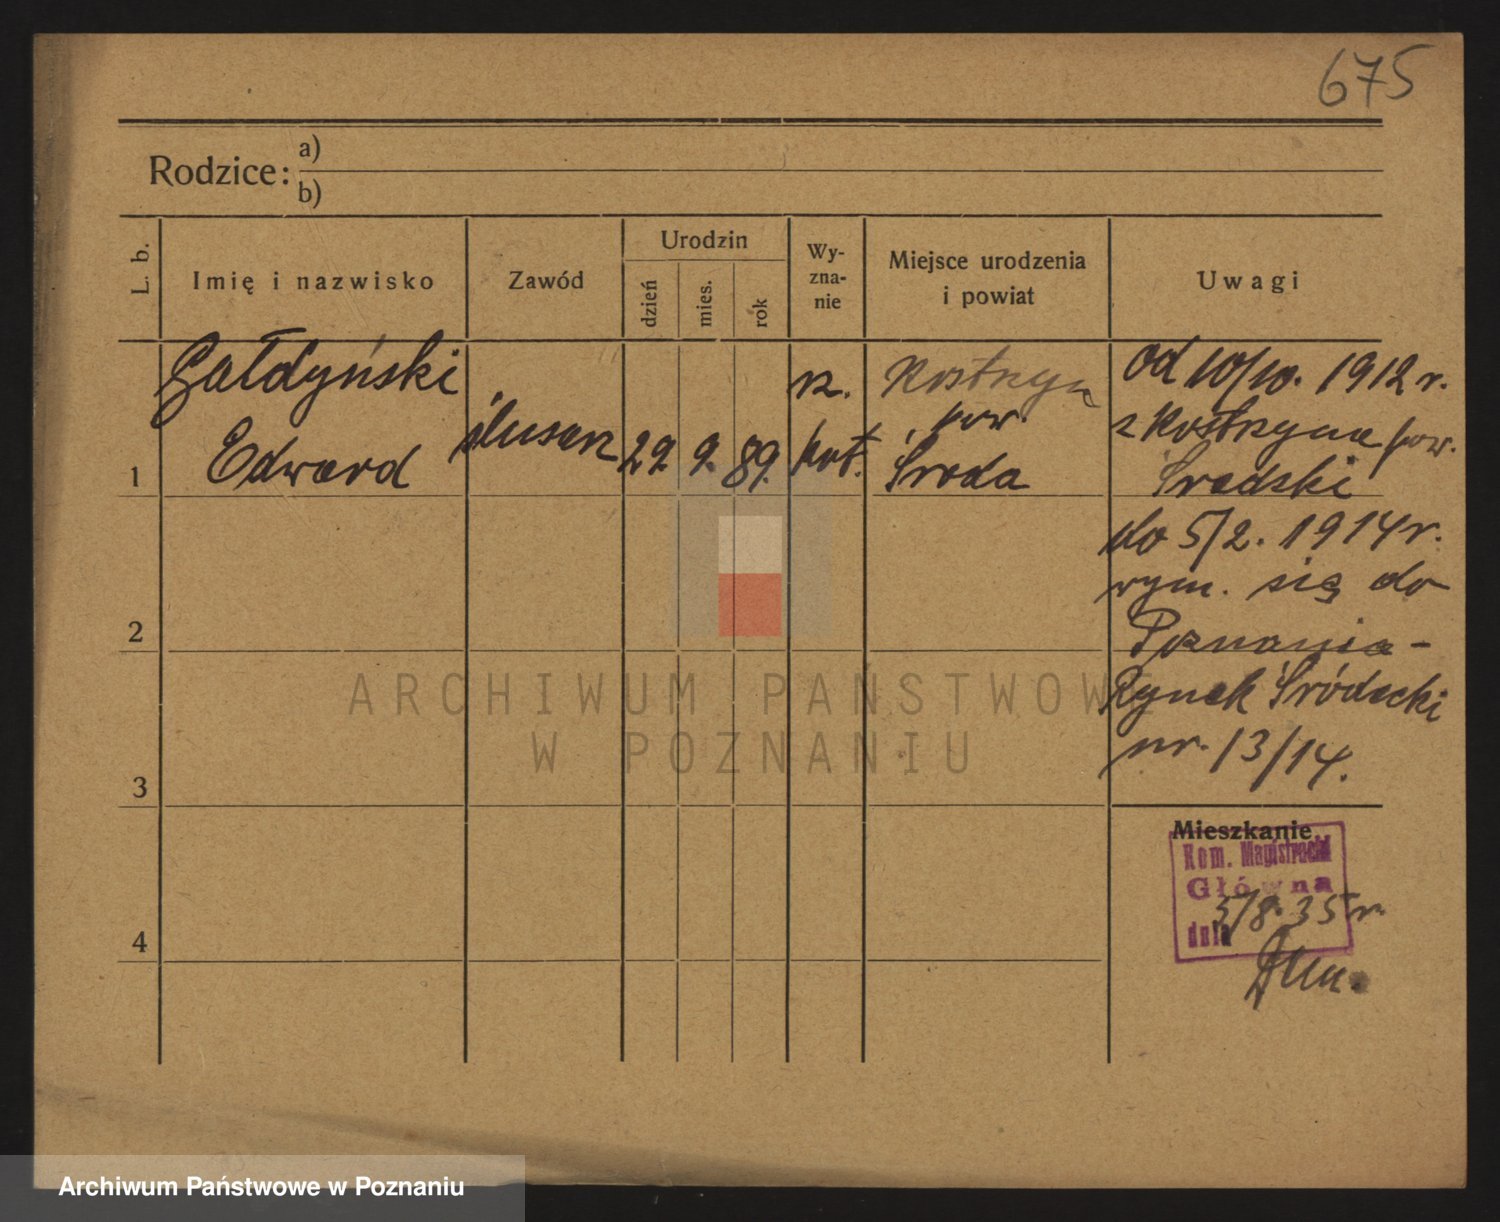 675
Rodzice: a)
b)
L. b.
Imię i nazwisko
Zawód
Urodzin
dzień
mies.
rok
Wy-
zna-
nie
Miejsce urodzenia
i powiat
Uwagi
1
Gałdyński
Edward
ślusarz
22
9.
89.
rz.
kat.
Kostrzyn
pow.
Środa
od 10/10. 1912 r.
z Kostrzyna pow.
Średzki
do 5/2. 1914 r.
wym. się do
Poznania -
Rynek Śródecki
nr. 13/14.
2
3
4
Mieszkanie
Kom. Magistracki
Główna
dnia 5/8. 35 r.
ARCHIWUM PAŃSTWOWE
W POZNANIU
Archiwum Państwowe w Poznaniu